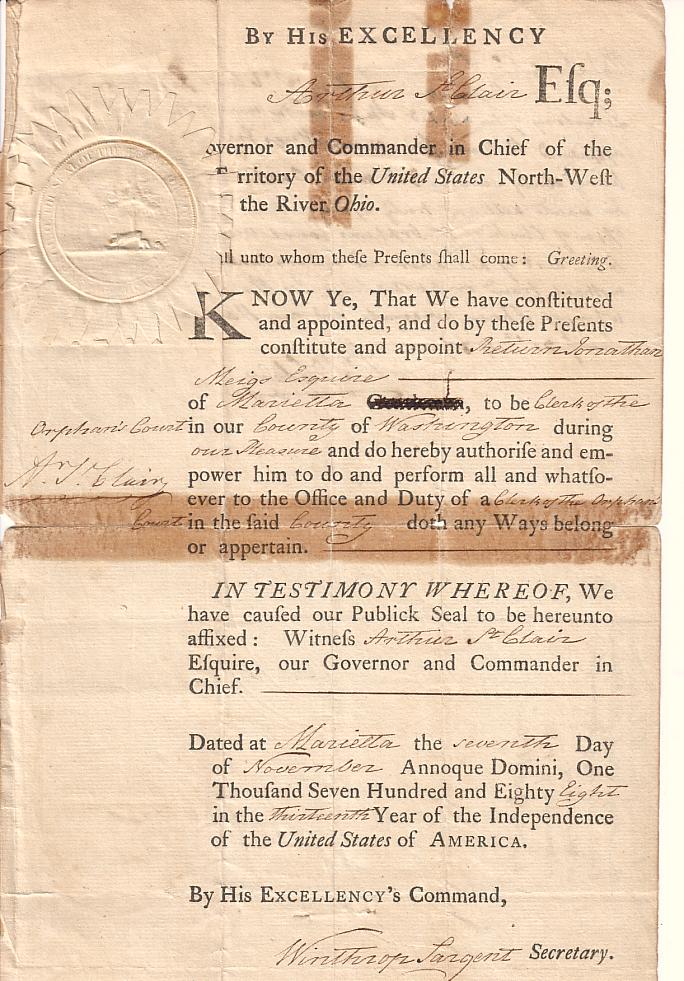 By His EXCELLENCY
Arthur St. Clair Eſq;
overnor and Commander in Chief of the
rritory of the United States North-Weſt
the River Ohio.
ll unto whom theſe Preſents ſhall come: Greeting.
KNOW Ye, That We have conſtituted
and appointed, and do by theſe Preſents
conſtitute and appoint Return Jonathan
Meigs Esquire
of Marietta , to be Clerk of the
Orphan's Court in our County of Washington during
our Pleasure and do hereby authoriſe and em-
A. St. Clair
power him to do and perform all and whatſo-
ever to the Office and Duty of a Clerk of the Orphan
Court in the ſaid County doth any Ways belong
or appertain.
IN TESTIMONY WHEREOF, We
have cauſed our Publick Seal to be hereunto
affixed: Witneſs Arthur St. Clair
Eſquire, our Governor and Commander in
Chief.
Dated at Marietta the seventh Day
of November Annoque Domini, One
Thouſand Seven Hundred and Eighty Eight
in the thirteenth Year of the Independence
of the United States of AMERICA.
By His EXCELLENCY's Command,
Winthrop Sargent Secretary.